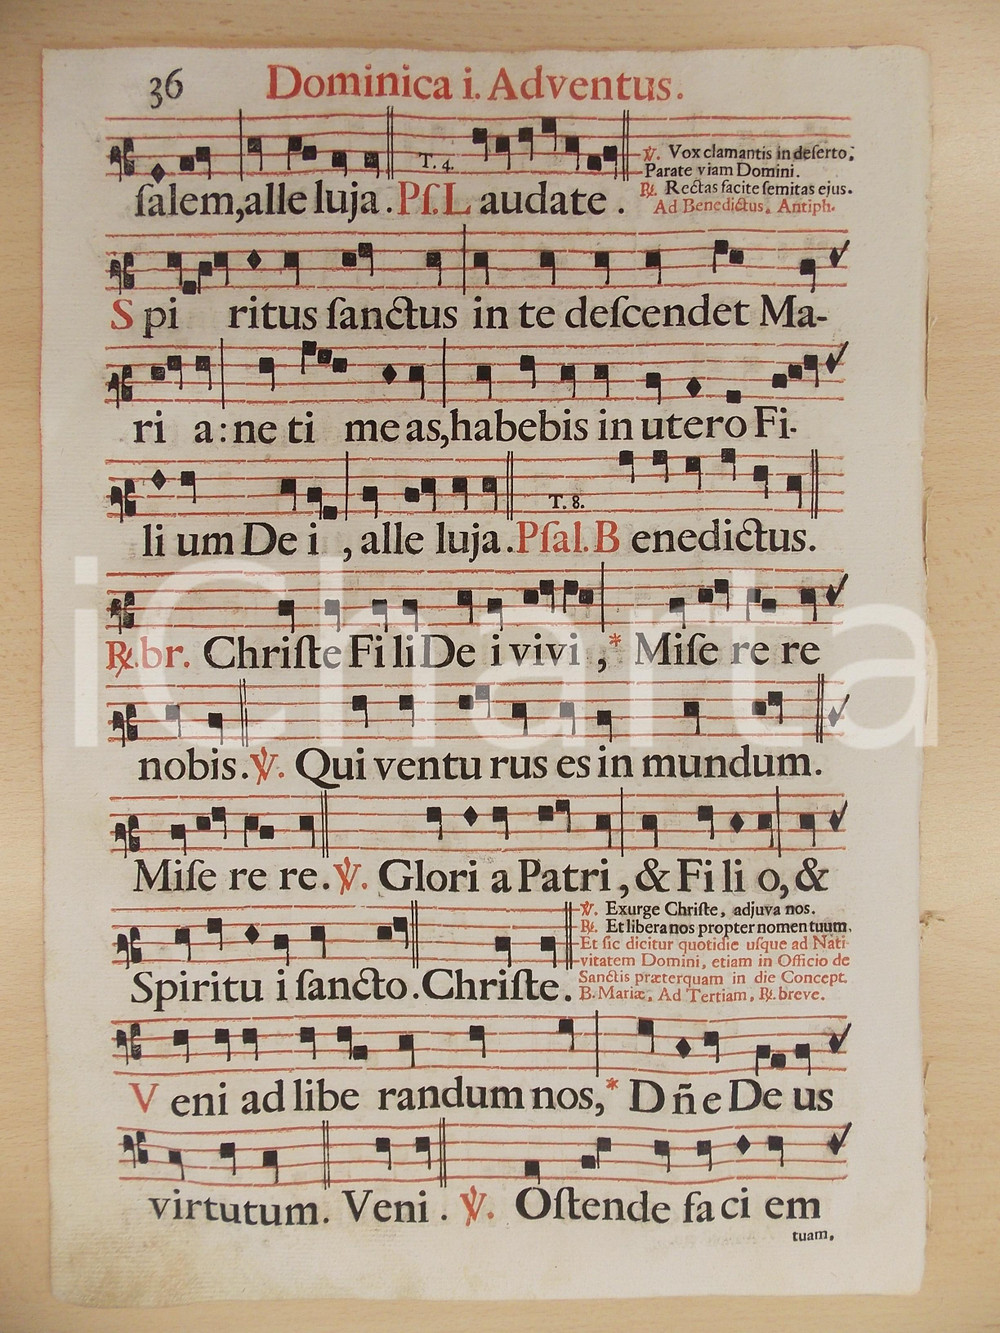 36 Dominica i. Adventus.
T. 4.
℣. Vox clamantis in deſerto:
Parate viam Domini.
℟. Rectas facite ſemitas ejus.
Ad Benedictus. Antiph.
ſalem, alle luja. Pſ. L audate.
S pi ritus ſanctus in te deſcendet Ma-
ri a: ne ti me as, habebis in utero Fi-
T. 8.
li um De i, alle luja. Pſal. B enedictus.
℟. br. Chriſte Fi li De i vivi,* Miſe re re
nobis. ℣. Qui ventu rus es in mundum.
Miſe re re. ℣. Glori a Patri, & Fi li o, &
℣. Exurge Chriſte, adjuva nos.
℟. Et libera nos propter nomen tuum.
Et ſic dicitur quotidie uſque ad Nati-
vitatem Domini, etiam in Officio de
Sanctis præterquam in die Concept.
B. Mariæ. Ad Tertiam, ℟. breve.
Spiritu i ſancto. Chriſte.
V eni ad libe randum nos,* Dñe De us
virtutum. Veni. ℣. Oſtende fa ci em
tuam,
iCharta